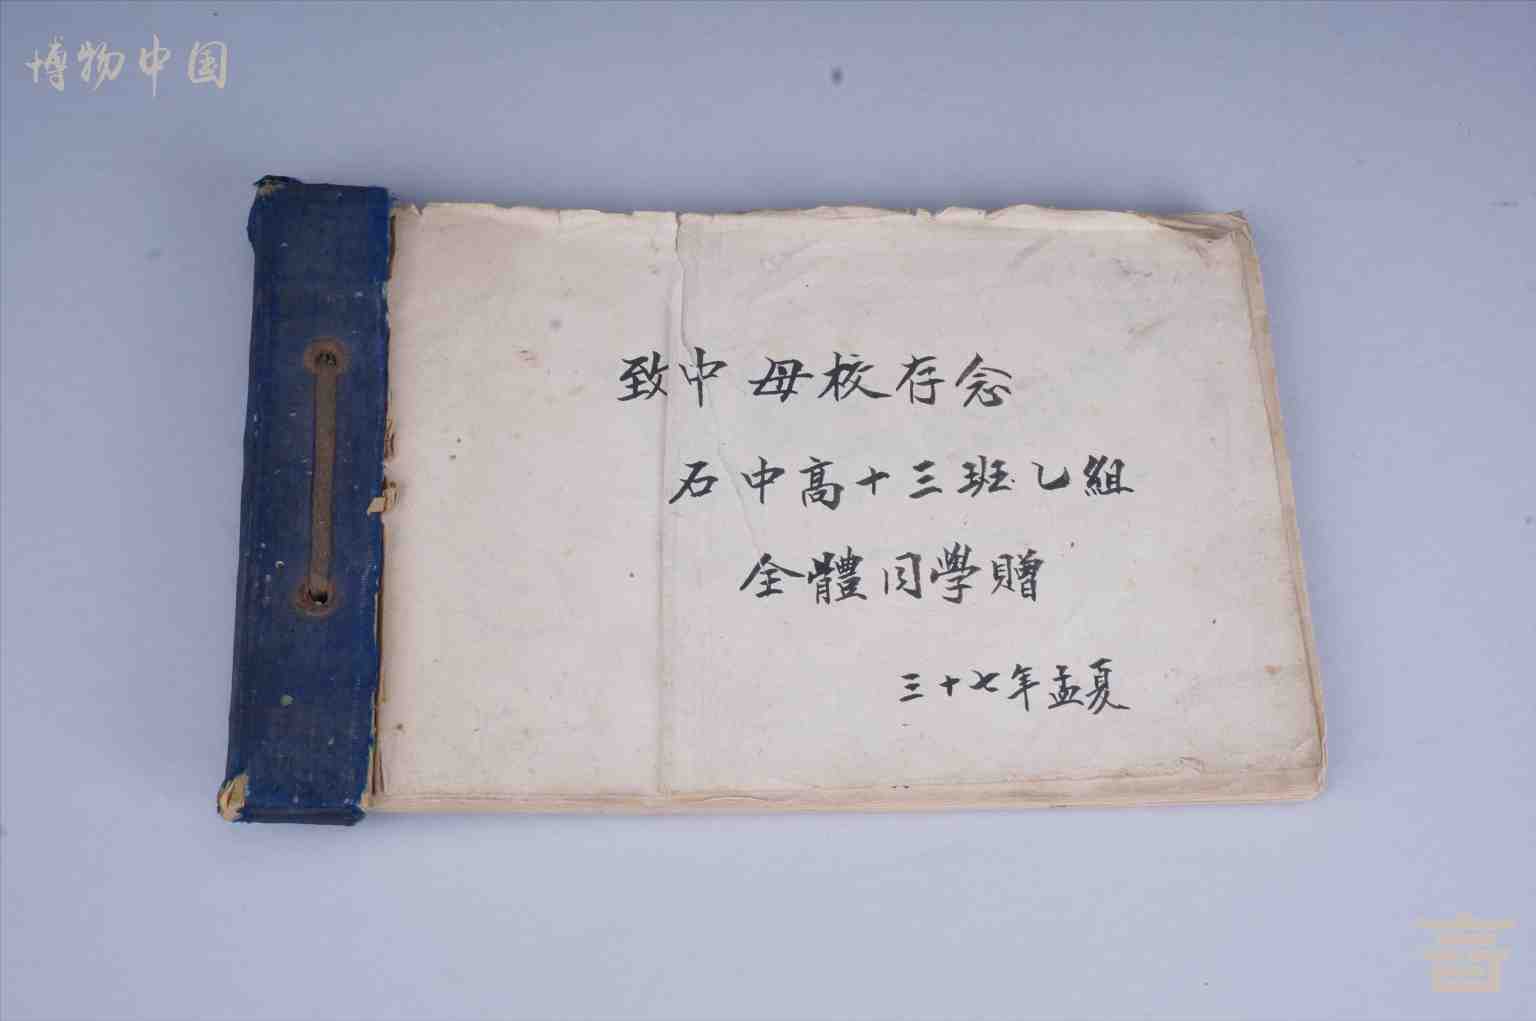 博物中国
致中母校存念
石中高十三班乙組
全體同學贈
三十七年孟夏